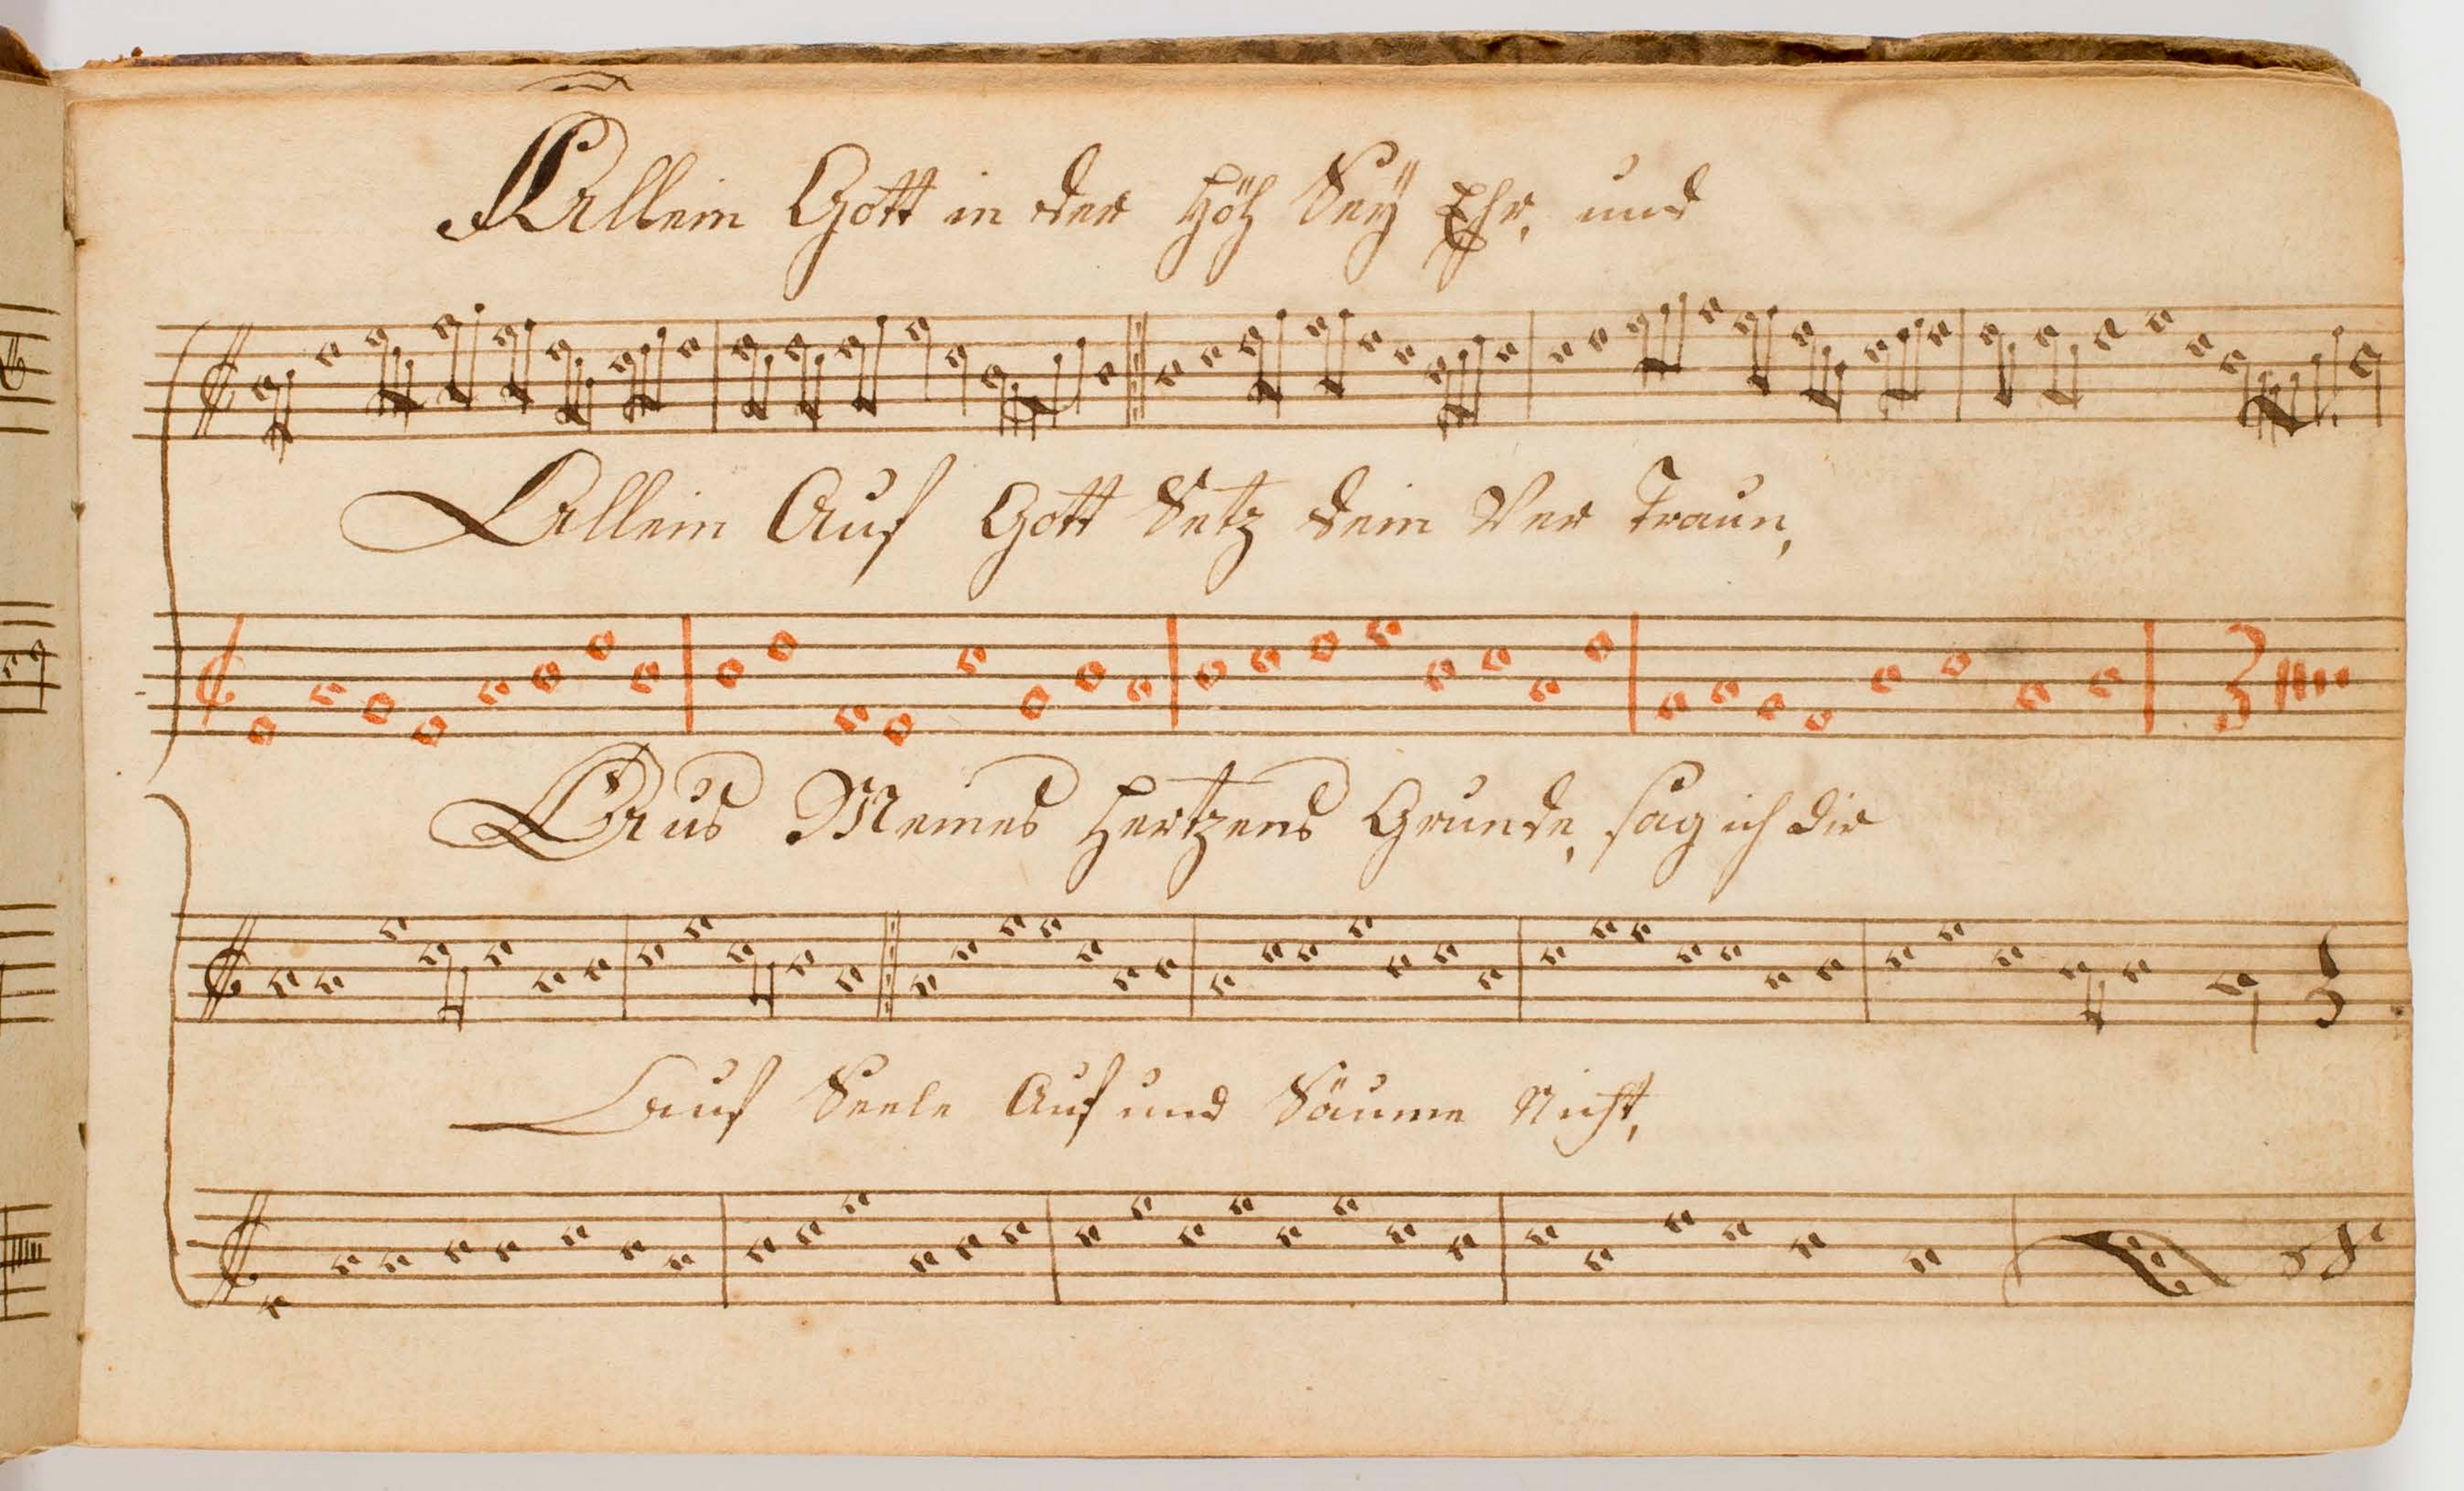 Allein Gott in der Höh Seÿ Ehr, und
Allein Auf Gott Setz dein Ver Traun,
Aus Meines Hertzens Grunde, sag ich dir
auf Seele Auf und Säume Nicht,